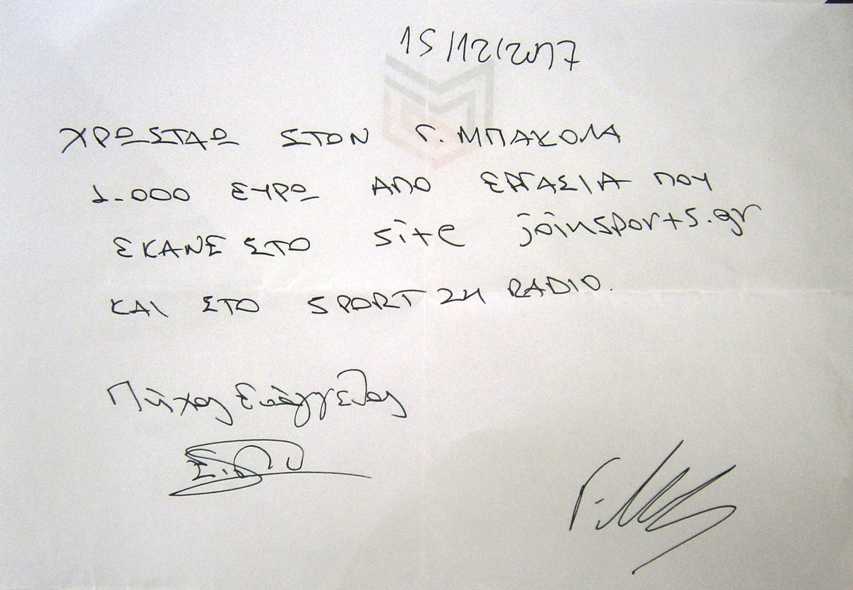 15/12/2017
ΧΡΩΣΤΑΩ ΣΤΟΝ Γ. ΜΠΑΚΟΛΑ
1.000 ΕΥΡΩ ΑΠΟ ΕΡΓΑΣΙΑ ΠΟΥ
ΕΚΑΝΕ ΣΤΟ site joinsports.gr
ΚΑΙ ΣΤΟ SPORT 24 RADIO.
Ευάγγελος